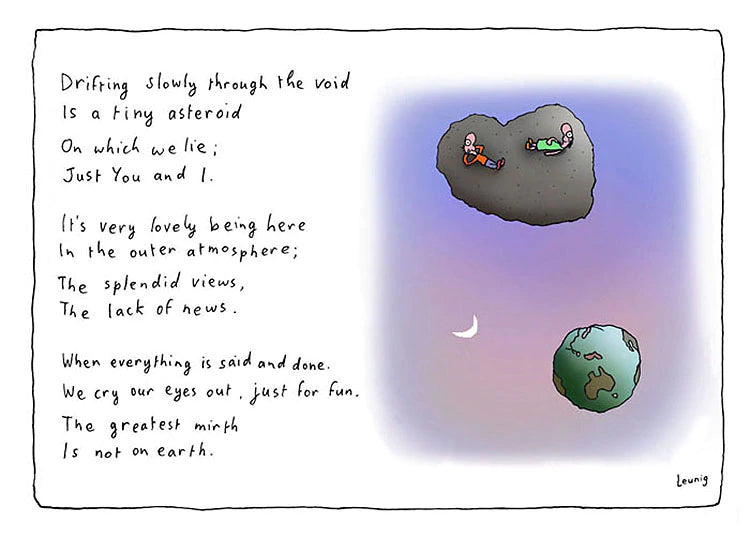 Drifting slowly through the void
Is a tiny asteroid
On which we lie;
Just You and I.
It's very lovely being here
In the outer atmosphere;
The splendid views,
The lack of news.
When everything is said and done.
We cry our eyes out, just for fun.
The greatest mirth
Is not on earth.
Leunig